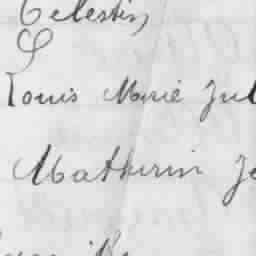 Celestin,
Louis Marie Jul
Mathurin Je